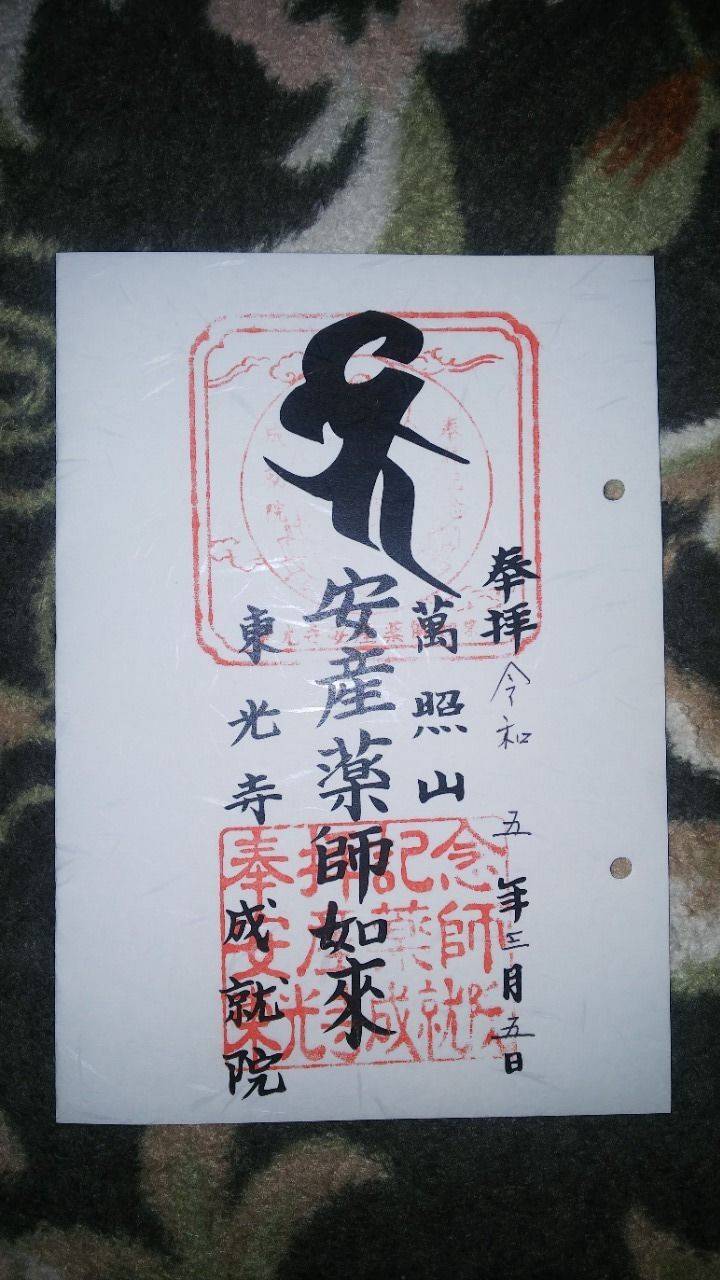 奉拝 令和 五 年 三月 五日
萬照山
安産薬師如來
東光寺 成就院
奉拝記念
安産薬師
東光寺成就院